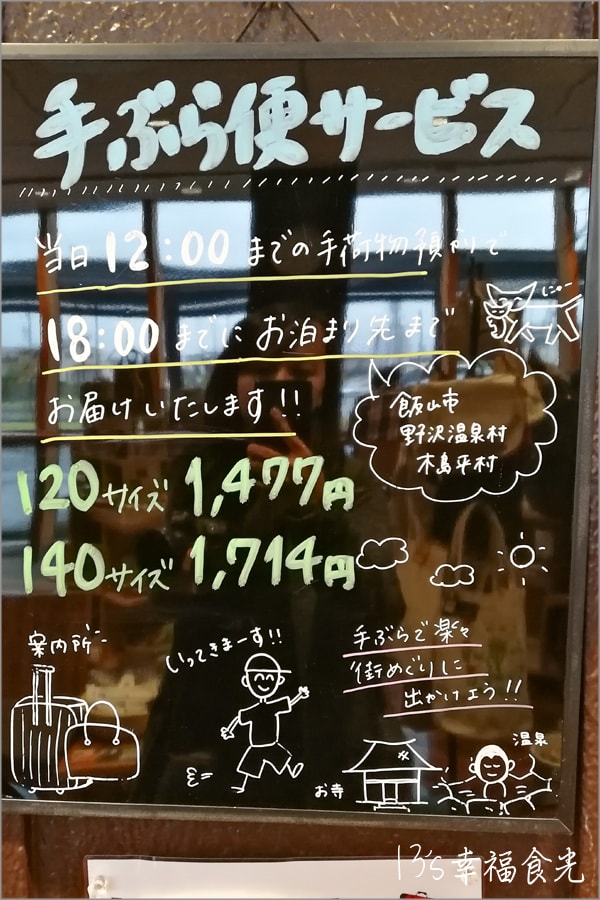 手ぶら便サービス
当日12:00までの手荷物預かりで
18:00までにお泊まり先まで
にゃー
お届けいたします!!
飯山市
野沢温泉村
木島平村
120サイズ 1,477円
140サイズ 1,714円
案内所
いってきまーす!!
手ぶらで楽々
街めぐりに
出かけよう!!
お寺
温泉
13's幸福食光